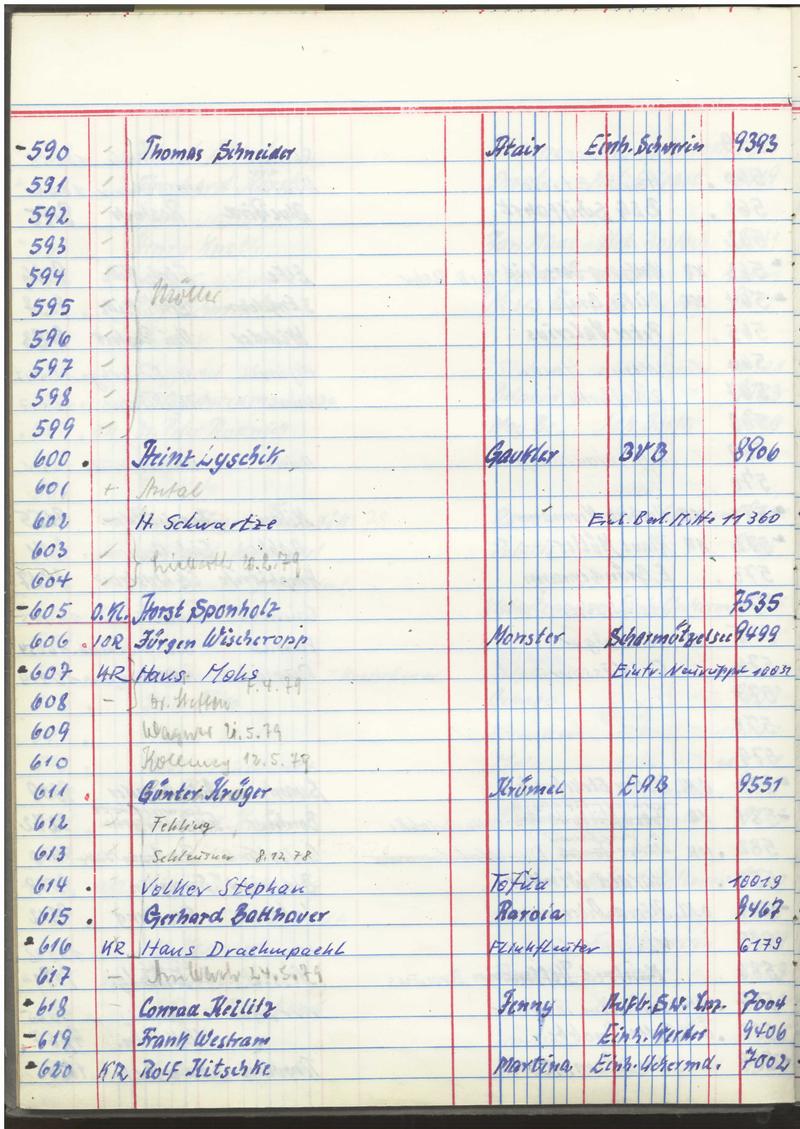 -590 Thomas Schneider Atair Einh. Schwerin 9393
591
592
593
594
595 Möller
596
597
598
599
600 . Heinz Lyschik Gaukler BVB 8906
601 + Antal
602 H. Schwartze Einh. Berl. Mitte 11360
603
604
-605 O.Kl. Horst Sponholz 7535
606 . 10R Jürgen Wischeropp Monster Scharmützelsee 9499
-607 KR Hans Mohs Eintr. Neuruppin 10031
608 - 7.4.79
609 Wagner 21.5.79
610 12.5.79
611 . Günter Krüger Krümel EAB 9551
612 Fehling
613 Schleusner 8.12.78
614 . Volker Stephan Tofua 10019
615 . Gerhard Batthauer Raroia 9467
-616 KR Hans Drachmpaehl Flinkflauter 6179
617 - 24.5.79
-618 Conrad Keilitz Jenny 7004
-619 Frank Westram Einh. Werder 9406
-620 KR Rolf Kitschke Martina Einh. Uckermd. 7002